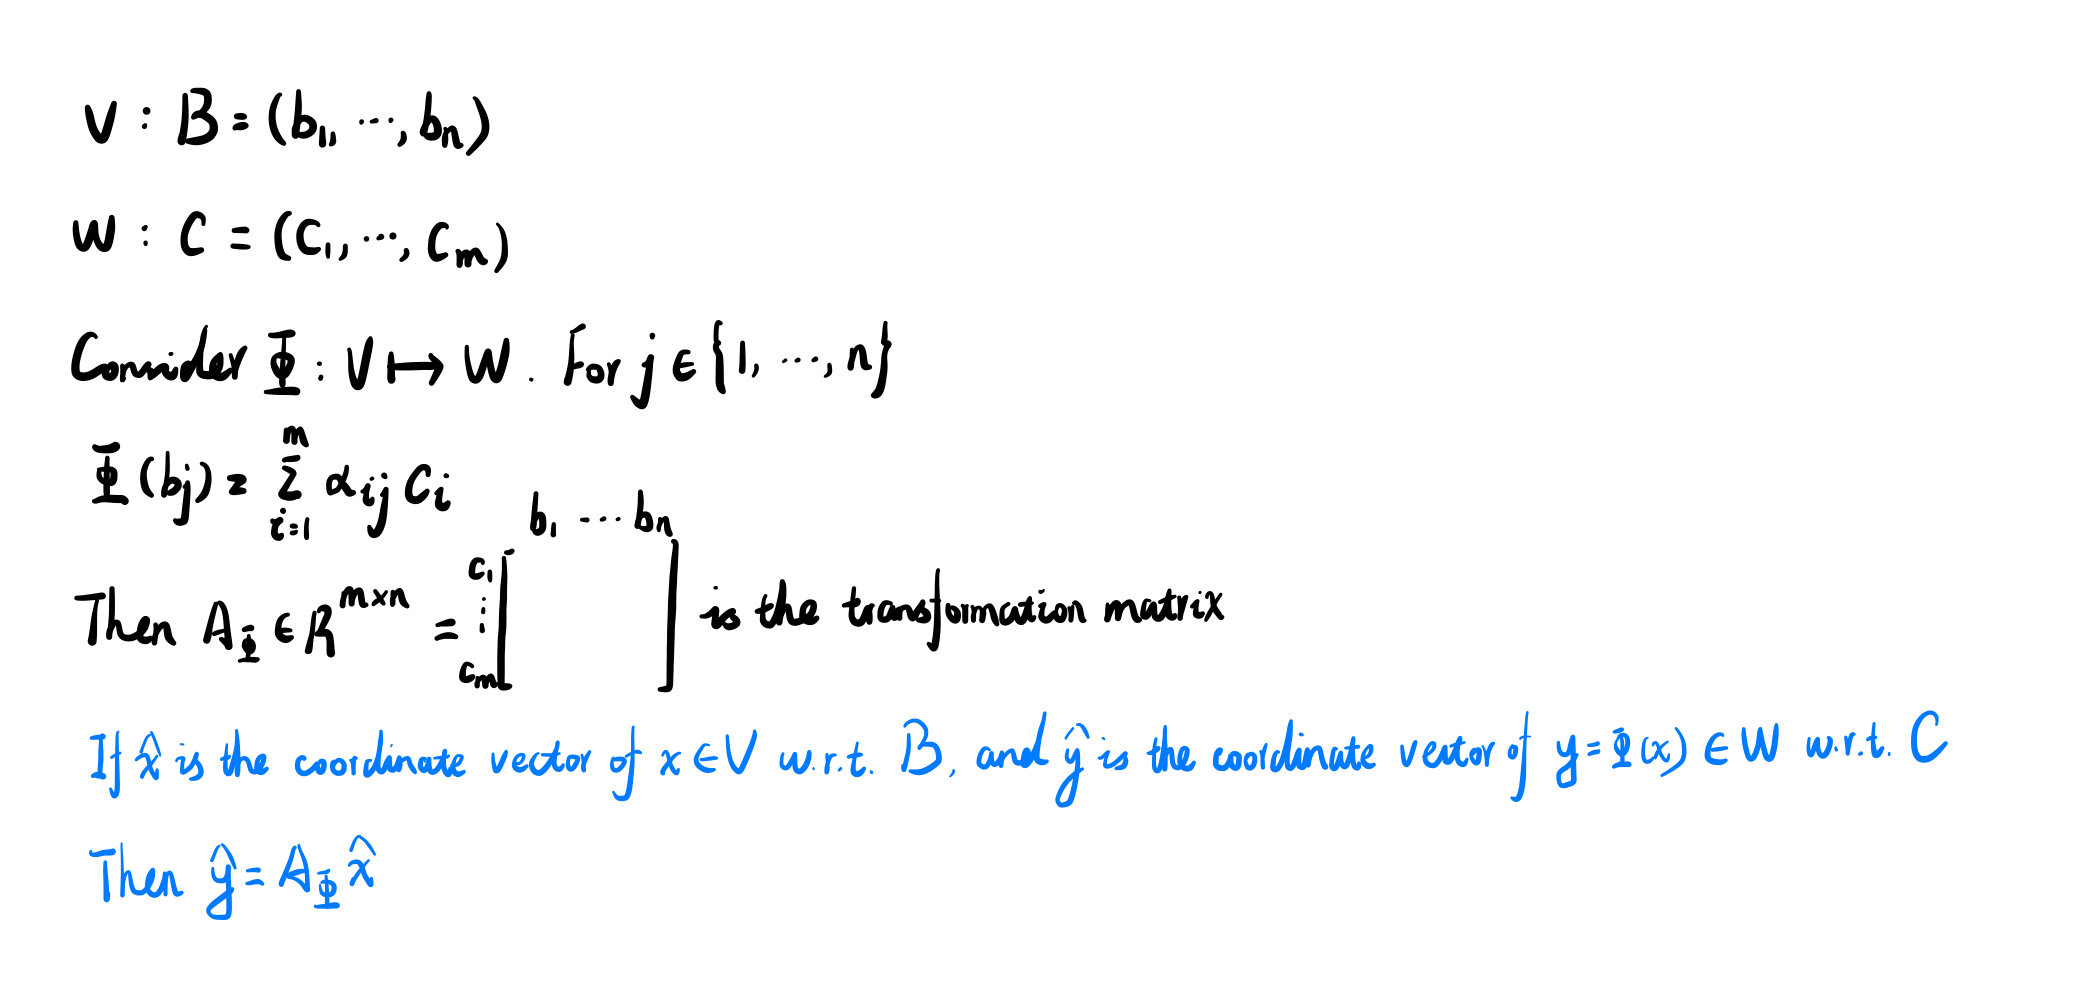 V : B = (b₁, ⋯, bₙ)
W : C = (C₁, ⋯, Cₘ)
Consider Φ : V ↦ W . For j ∈ {1, ⋯, n}
Φ(bj) = Σ_{i=1}^{m} αᵢⱼ Cᵢ
b₁ ⋯ bₙ
Then A_Φ ∈ R^{m×n} = c₁ ⋮ cₘ [ ] is the transformation matrix
If x̂ is the coordinate vector of x ∈ V w.r.t. B, and ŷ is the coordinate vector of y = Φ(x) ∈ W w.r.t. C
Then ŷ = A_Φ x̂